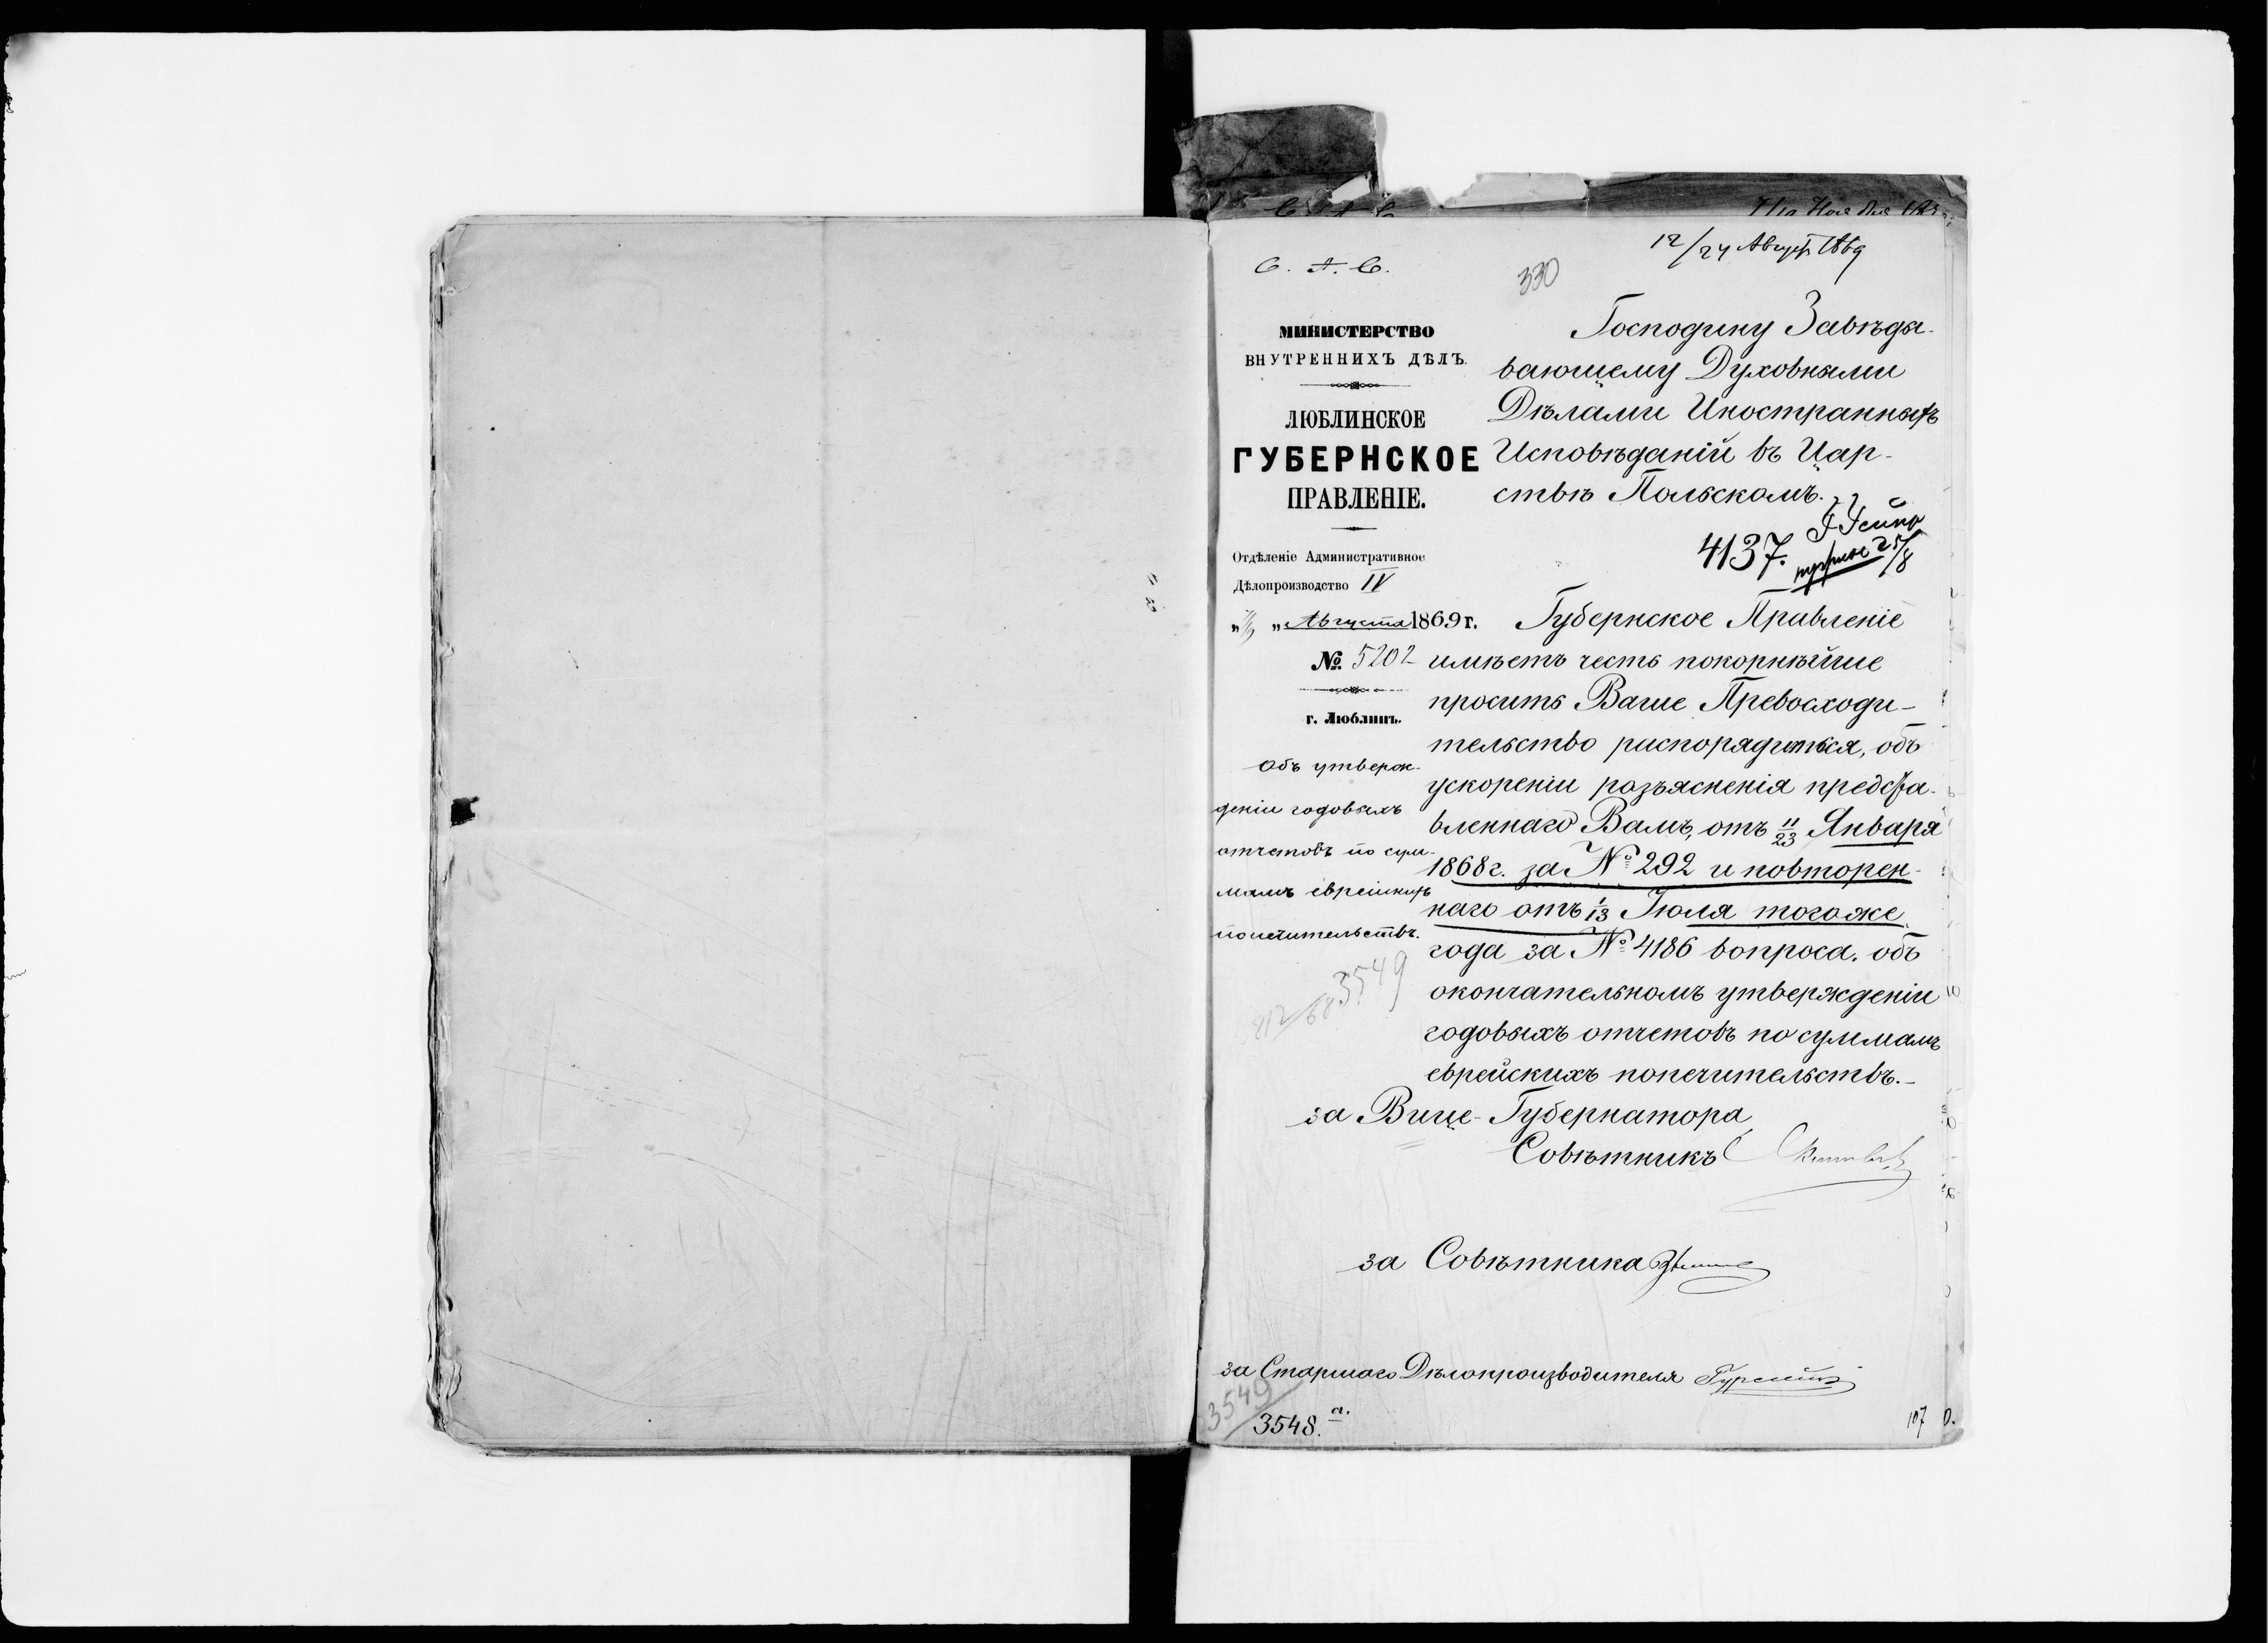 12/24 Август 1869
С. А. С.
330
МИНИСТЕРСТВО
ВНУТРЕННИХЪ ДѢЛЪ.
ЛЮБЛИНСКОЕ
ГУБЕРНСКОЕ
ПРАВЛЕНІЕ.
Отдѣленіе Административное
Дѣлопроизводство IV
„ „ Августа 1869 г.
№ 5202
г. Люблинъ.
Объ утверж-
деніи годовыхъ
отчетовъ по сум-
мамъ еврейскихъ
попечительствъ.
3549
812/68
Господину Завѣды-
вающему Духовными
Дѣлами Иностранныхъ
Исповѣданій въ Цар-
ствѣ Польскомъ.
4137.
25/8
Губернское Правленіе
имѣетъ честь покорнѣйше
просить Ваше Превосходи-
тельство распорядиться, объ
ускореніи разъясненія предста-
вленнаго Вамъ, отъ 11/23 Января
1868 г. за № 292 и повторен-
наго отъ 1/13 Іюля тогоже
года за № 4186 вопроса. объ
окончательномъ утвержденіи
годовыхъ отчетовъ по суммамъ
еврейскихъ попечительствъ.-
за Вице-Губернатора
Совѣтникъ
за Совѣтника
за Старшаго Дѣлопроизводителя
3549
3548.а.
107